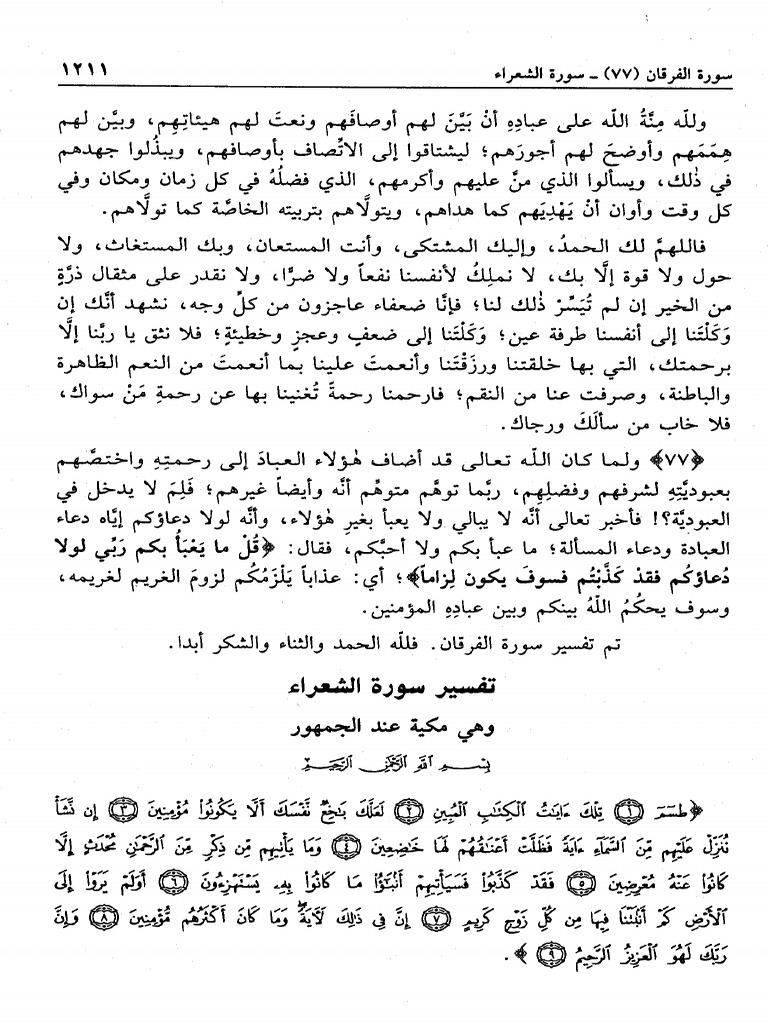 سورة الفرقان (٧٧) ـ سورة الشعراء ١٢١١
ولله مِنَّةُ الله على عبادِهِ أنْ بَيَّنَ لهم أوصافَهم ونعتَ لهم هيئاتِهِم، وبيَّن لهم
هِمَمَهم وأوضحَ لهم أجورَهم؛ ليشتاقوا إلى الاتِّصاف بأوصافهم، ويبذُلوا جهدهم
في ذٰلك، ويسألوا الذي منَّ عليهم وأكرمهم، الذي فضلُهُ في كل زمان ومكان وفي
كل وقت وأوان أنْ يَهْدِيَهم كما هداهم، ويتولَّاهم بتربيته الخاصَّة كما تولَّاهم.
فاللهمَّ لك الحمدُ، وإليك المشتكى، وأنت المستعان، وبك المستغاث، ولا
حول ولا قوة إلَّا بك، لا نملِكُ لأنفسنا نفعاً ولا ضرًّا، ولا نقدر على مثقال ذرَّةٍ
من الخير إن لم تُيَسِّرْ ذٰلك لنا؛ فإنَّا ضعفاء عاجزون من كلِّ وجه، نشهد أنَّك إن
وَكَلْتَنا إلى أنفسنا طرفة عين؛ وَكَلْتَنا إلى ضعفٍ وعجزٍ وخطيئةٍ؛ فلا نثق يا ربَّنا إلَّا
برحمتك، التي بها خلقتنا ورزَقْتَنا وأنعمتَ علينا بما أنعمتَ من النعم الظاهرة
والباطنة، وصرفت عنا من النقم؛ فارحمنا رحمةً تُغنينا بها عن رحمةِ مَنْ سواك،
فلا خاب من سألَكَ ورجاك.
﴿٧٧﴾ ولما كان الله تعالى قد أضاف هٰؤلاء العبادَ إلى رحمتِهِ واختصَّهم
بعبوديَّتِهِ لشرفهم وفضلِهِم، ربَّما توهَّم متوهِّم أنَّه وأيضاً غيرهم؛ فَلِمَ لا يدخل في
العبوديَّة؟! فأخبر تعالى أنَّه لا يبالي ولا يعبأ بغيرِ هٰؤلاء، وأنه لولا دعاؤكم إيَّاه دعاء
العبادة ودعاء المسألة؛ ما عبأ بكم ولا أحبَّكم، فقال: ﴿قُلْ ما يَعْبَأُ بكم رَبِّي لولا
دُعاؤكم فقد كَذَّبْتُم فسوفَ يكون لِزاماً﴾؛ أي: عذاباً يَلْزَمُكُم لزومَ الغريم لغريمه،
وسوف يحكُمُ اللهُ بينكم وبين عبادِهِ المؤمنين.
تم تفسير سورة الفرقان. فلله الحمد والثناء والشكر أبدا.
تفسير سورة الشعراء
وهي مكية عند الجمهور
بسم الله الرحمن الرحيم
﴿طسٓمٓ ﴿١﴾ تِلْكَ ءَايَٰتُ ٱلْكِتَٰبِ ٱلْمُبِينِ ﴿٢﴾ لَعَلَّكَ بَٰخِعٌ نَّفْسَكَ أَلَّا يَكُونُوا۟ مُؤْمِنِينَ ﴿٣﴾ إِن نَّشَأْ
نُنَزِّلْ عَلَيْهِم مِّنَ ٱلسَّمَآءِ ءَايَةً فَظَلَّتْ أَعْنَٰقُهُمْ لَهَا خَٰضِعِينَ ﴿٤﴾ وَمَا يَأْتِيهِم مِّن ذِكْرٍ مِّنَ ٱلرَّحْمَٰنِ مُحْدَثٍ إِلَّا
كَانُوا۟ عَنْهُ مُعْرِضِينَ ﴿٥﴾ فَقَدْ كَذَّبُوا۟ فَسَيَأْتِيهِمْ أَنۢبَٰٓؤُا۟ مَا كَانُوا۟ بِهِۦ يَسْتَهْزِءُونَ ﴿٦﴾ أَوَلَمْ يَرَوْا۟ إِلَى
ٱلْأَرْضِ كَمْ أَنۢبَتْنَا فِيهَا مِن كُلِّ زَوْجٍ كَرِيمٍ ﴿٧﴾ إِنَّ فِى ذَٰلِكَ لَءَايَةً وَمَا كَانَ أَكْثَرُهُم مُّؤْمِنِينَ ﴿٨﴾ وَإِنَّ
رَبَّكَ لَهُوَ ٱلْعَزِيزُ ٱلرَّحِيمُ ﴿٩﴾﴾.